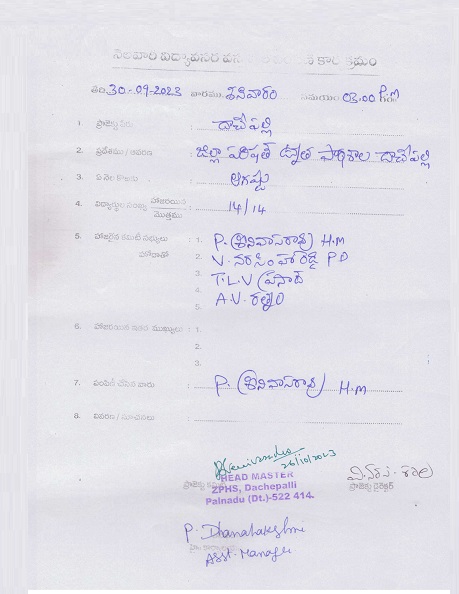 నెలవారి విద్యావసర వస్తువుల పంపిణీ కార్యక్రమం
తేది 30-09-2023 వారము శనివారం సమయం 03.00 P.M గం॥
1. ప్రాజెక్టు పేరు : దాచేపల్లి
2. ప్రదేశము / ఆవరణ : జిల్లా పరిషత్ ఉన్నత పాఠశాల దాచేపల్లి
3. ఏ నెల కొరకు : ఆగష్టు
4. విద్యార్థుల సంఖ్య హాజరయిన మొత్తము : 14/14
5. హాజరైన కమిటీ సభ్యులు : 1. P. శ్రీనివాసరావు H.M
2. V. నరసింహారెడ్డి P.D
3. T.L.V ప్రసాద్
4. A.V. రత్నం
5.
6. హాజరయిన ఇతర ముఖ్యులు : 1.
2.
3.
7. పంపిణీ చేసిన వారు : P. శ్రీనివాసరావు H.M
8. వివరణ / సూచనలు :
26/10/2023
HEAD MASTER
ZPHS, Dachepalli
Palnadu (Dt.)-522 414.
ప్రాజెక్టు డైరెక్టర్
P. Dhanalakshmi
Asst. Manager